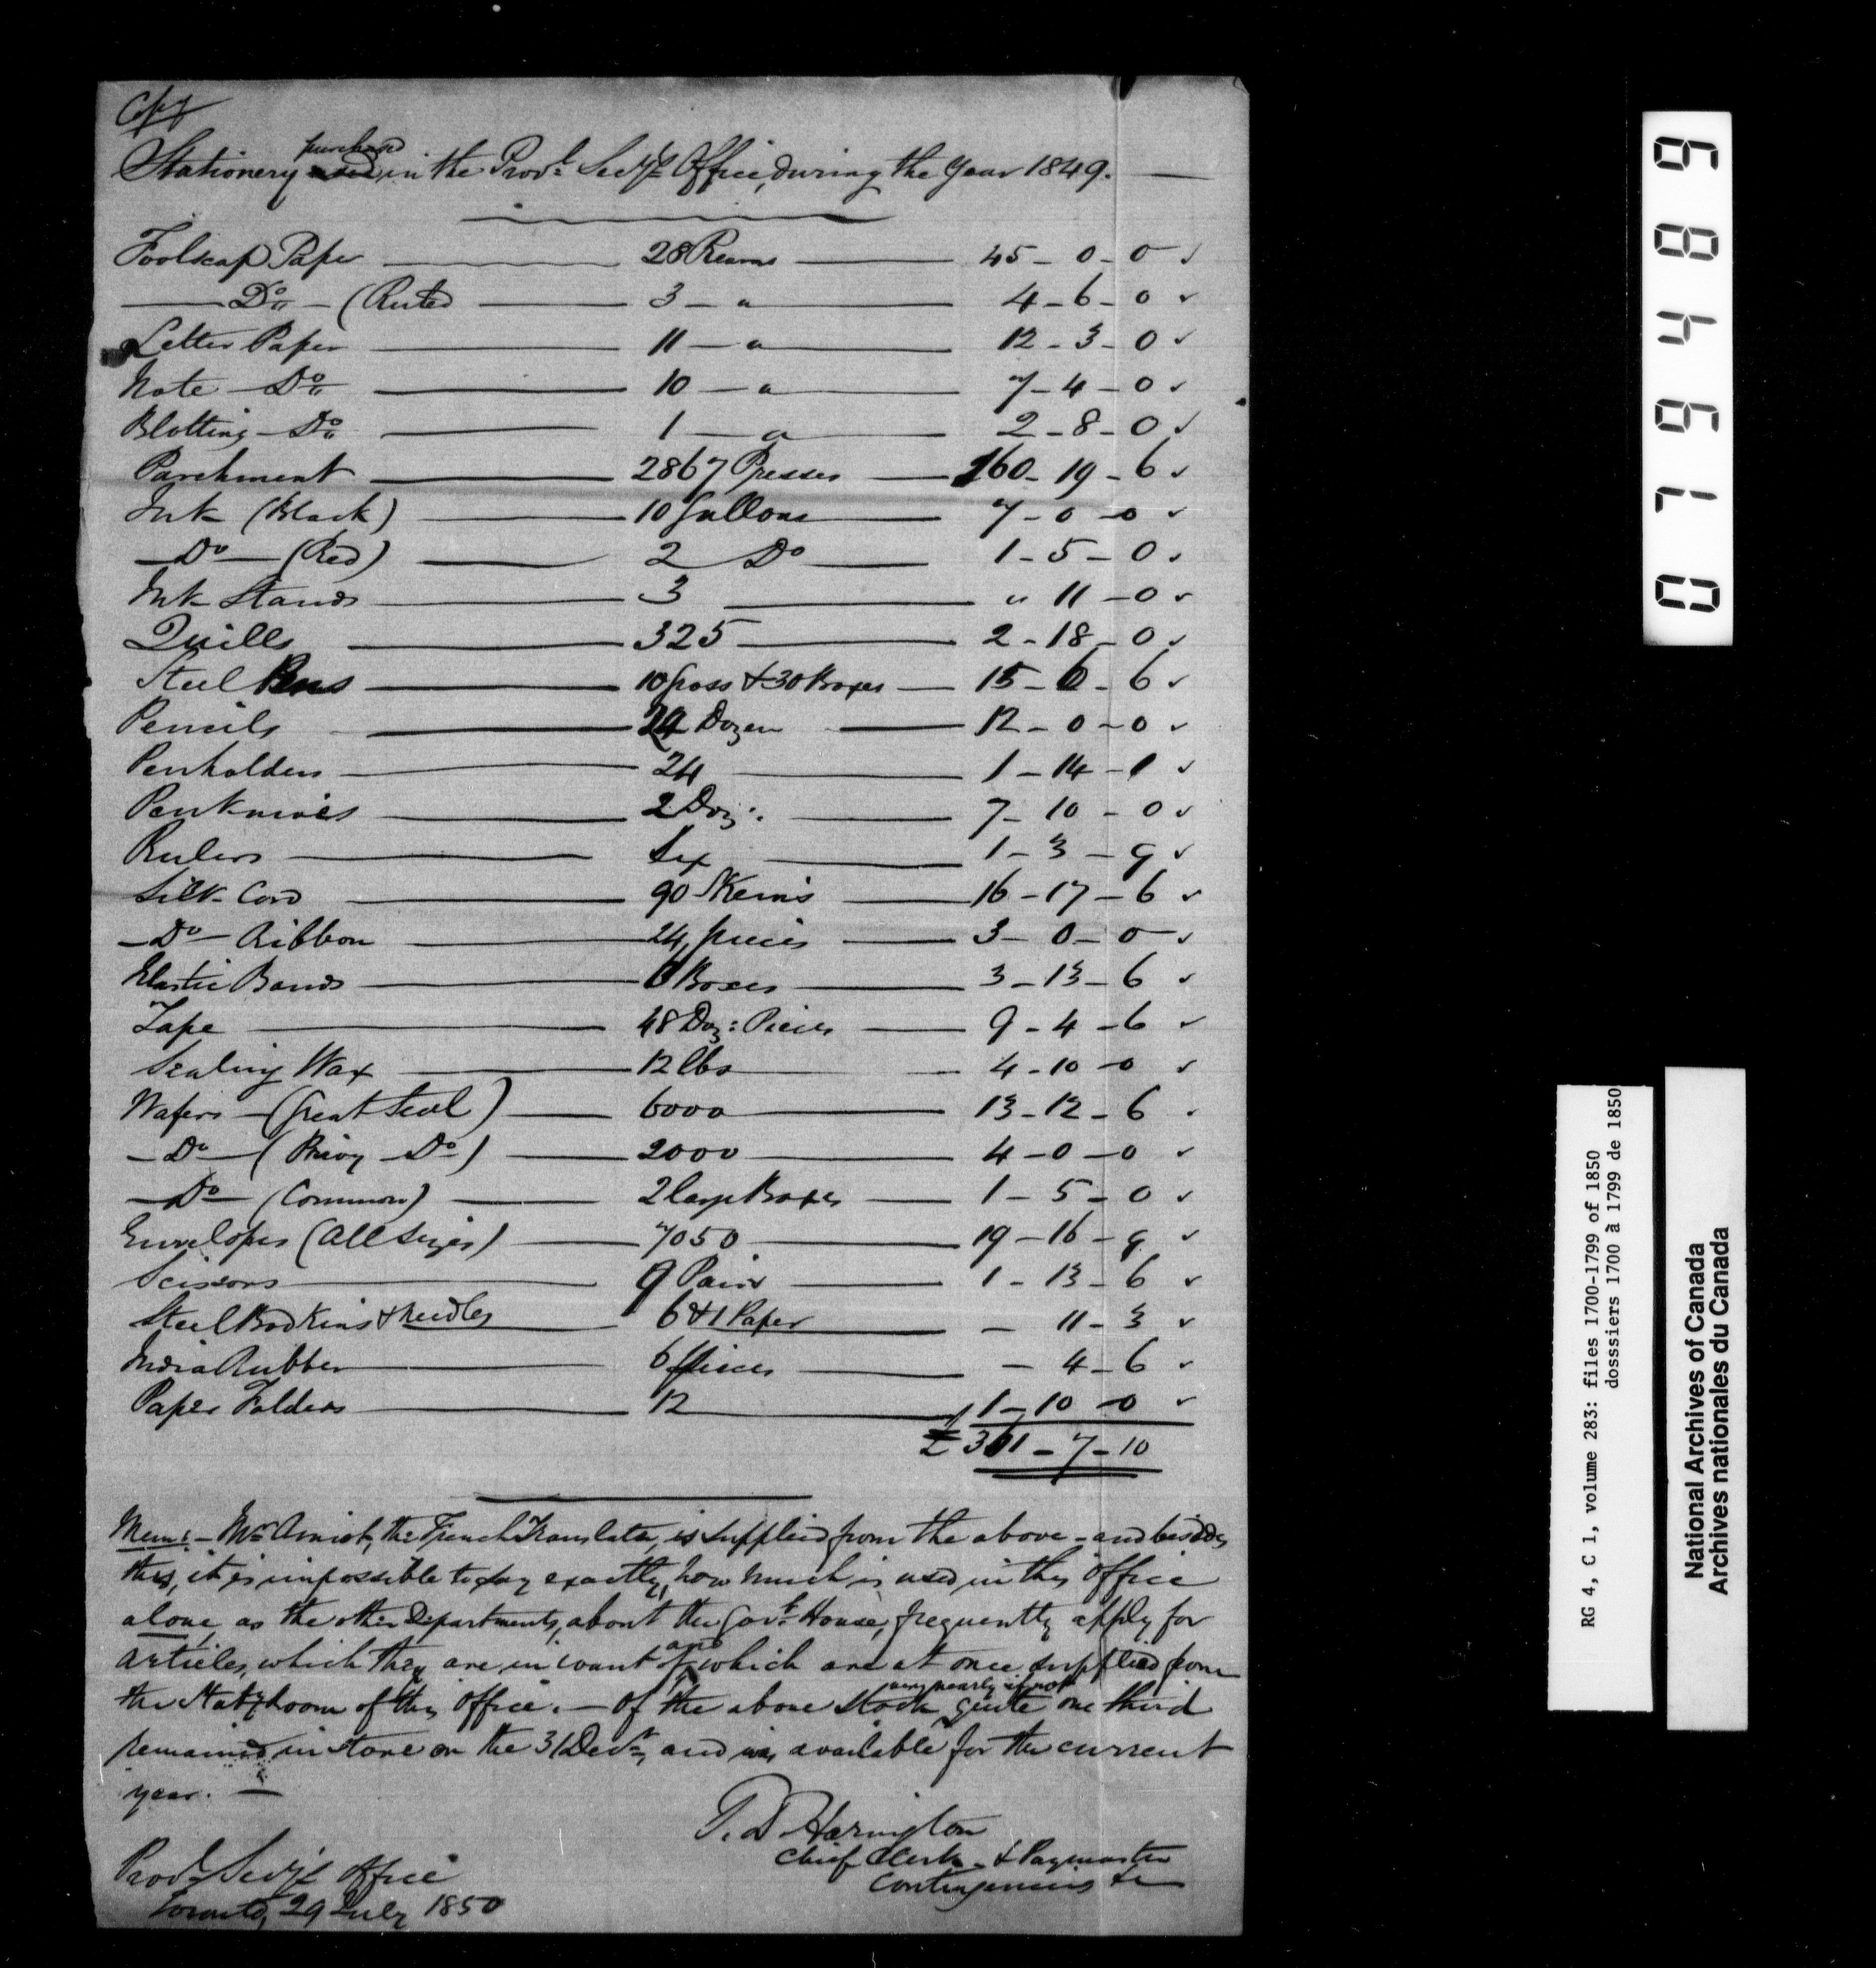 Copy
purchased
Stationery used, in the Provl Secy's Office, during the Year 1849. —
Foolscap Paper — 28 Reams — 45 - 0 - 0 ✓
— Do — (Ruled — 3 — " — 4 - 6 - 0 ✓
Letter Paper — 11 — " — 12 - 3 - 0 ✓
Note — Do — 10 — " — 7 - 4 - 0 ✓
Blotting — Do — 1 — " — 2 - 8 - 0 ✓
Parchment — 2867 Presses — 160 - 19 - 6 ✓
Ink (Black) — 10 Gallons — 7 - 0 - 0 ✓
— Do — (Red) — 2 Do — 1 - 5 - 0 ✓
Ink Stands — 3 — " 11 - 0 ✓
Quills — 325 — 2 - 18 - 0 ✓
Steel Pens — 10 Gross & 30 Boxes — 15 - 6 - 6 ✓
Pencils — 24 Dozen — 12 - 0 - 0 ✓
Penholders — 24 — 1 - 14 - 1 ✓
Penknives — 2 Doz: — 7 - 10 - 0 ✓
Rulers — Six — 1 - 3 - 9 ✓
Silk Cord — 90 Skeins — 16 - 17 - 6 ✓
— Do — Ribbon — 24 pieces — 3 - 0 - 0 ✓
Elastic Bands — Boxes — 3 - 13 - 6 ✓
Tape — 48 Doz: Pieces — 9 - 4 - 6 ✓
Sealing Wax — 12 lbs — 4 - 10 - 0 ✓
Wafers — (Great Seal) — 6000 — 13 - 12 - 6
— Do — (Privy Do) — 2000 — 4 - 0 - 0 ✓
— Do — (Common) — 2 large Boxes — 1 - 5 - 0 ✓
Envelopes (All sizes) — 7050 — 19 - 16 - 9 ✓
Scissors — 9 Pairs — 1 - 13 - 6 ✓
Steel Bodkins & Needles — 6 & 1 Paper — 11 - 3 ✓
India Rubber — 6 pieces — 4 - 6 ✓
Paper Folders — 12 — 1 - 10 - 0 ✓
£ 361 - 7 - 10
Memo: — Mr Amiot, the French Translator, is supplied from the above — and besides
this, it is impossible to say exactly, how much is used in this Office
alone, as the other Departments, about the Govt House, frequently apply for
and
articles, which they are in want of, which are at once supplied from
very nearly if not
the Staty Room of this Office. — Of the above Stock quite one third
remained in Store on the 31 Decr, and was available for the current
year. —
T. D. Harington
Chief Clerk & Paymaster
Contingencies &c
Provl Secy's Office
Toronto, 29 July 1850
079489
RG 4, C 1, volume 283: files 1700-1799 of 1850
dosssiers 1700 à 1799 de 1850
National Archives of Canada
Archives nationales du Canada